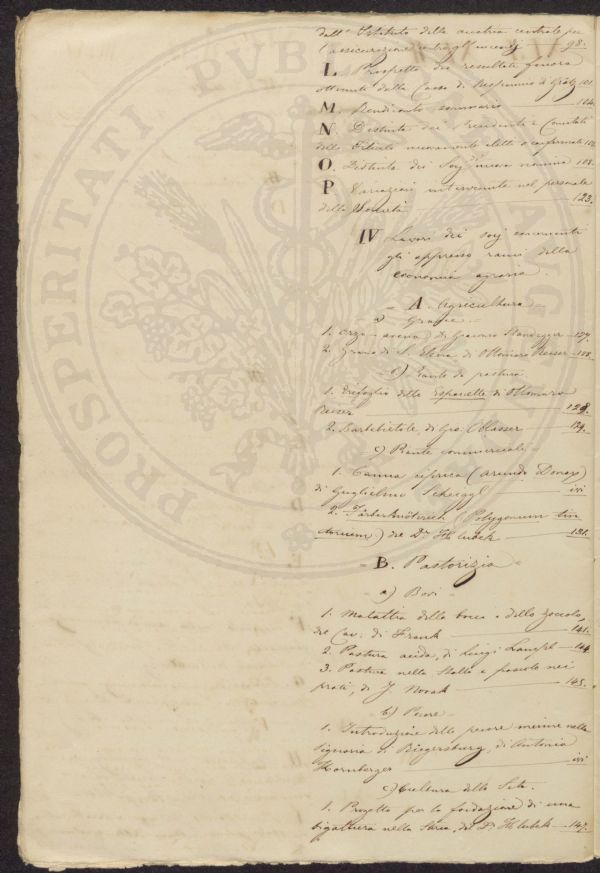 dall' Istituto della austria centrale per
l'assecurazione contro gl'incendj 98.
L. Prospetto dei resultati finora
ottenuti dalla Cassa di Risparmio di Grätz 101
M. Rendiconto sommario 104.
N. Distinta dei Presidenti e Comitati
delle Filiali nuovamente eletti o confermati
O. Distinta dei Socj nuova nomina 108.
P. Variazioni intervenute nel personale
della Società 123.
IV Lavori dei socj concernenti
gli appresso rami della
economia agraria.
A. Agricultura
a) Granie
1. Orzo-avena di Giacomo 127.
2. Grano di S. Elena di Ottomaro Reiser 128.
b) Piante da pastura
1. Trifoglio detto Esparsette di Ottomaro
Reiser 128.
2. Barbebietole di Gio. Classer 129.
c) Piante commerciali
1. Canna sifirica (Arundo Donax)
di Guglielmo ivi
2. Färberknöterich (Polygonum tin
ctorium) del Dr Hlubek 131.
B. Pastorizia
a) Bovi
1. Malattia della bocca e dello zoccolo,
del Cav. di Frank 141.
2. Pastura acida, di Luigi Lampl 144
3. Pastura nella Stalla e pascolo nei
prati, di J. Novak 145.
b) Pecore
1. Introduzione delle pecore merine nella
Signoria di Riegersburg, di Antonio
Hornberger ivi
c) Cultura della Seta.
1. Progetto per la fondazione di una
bigattiera nella Stiria, del Dr Hlubek 147.
PROSPERITATI PUBLICAE